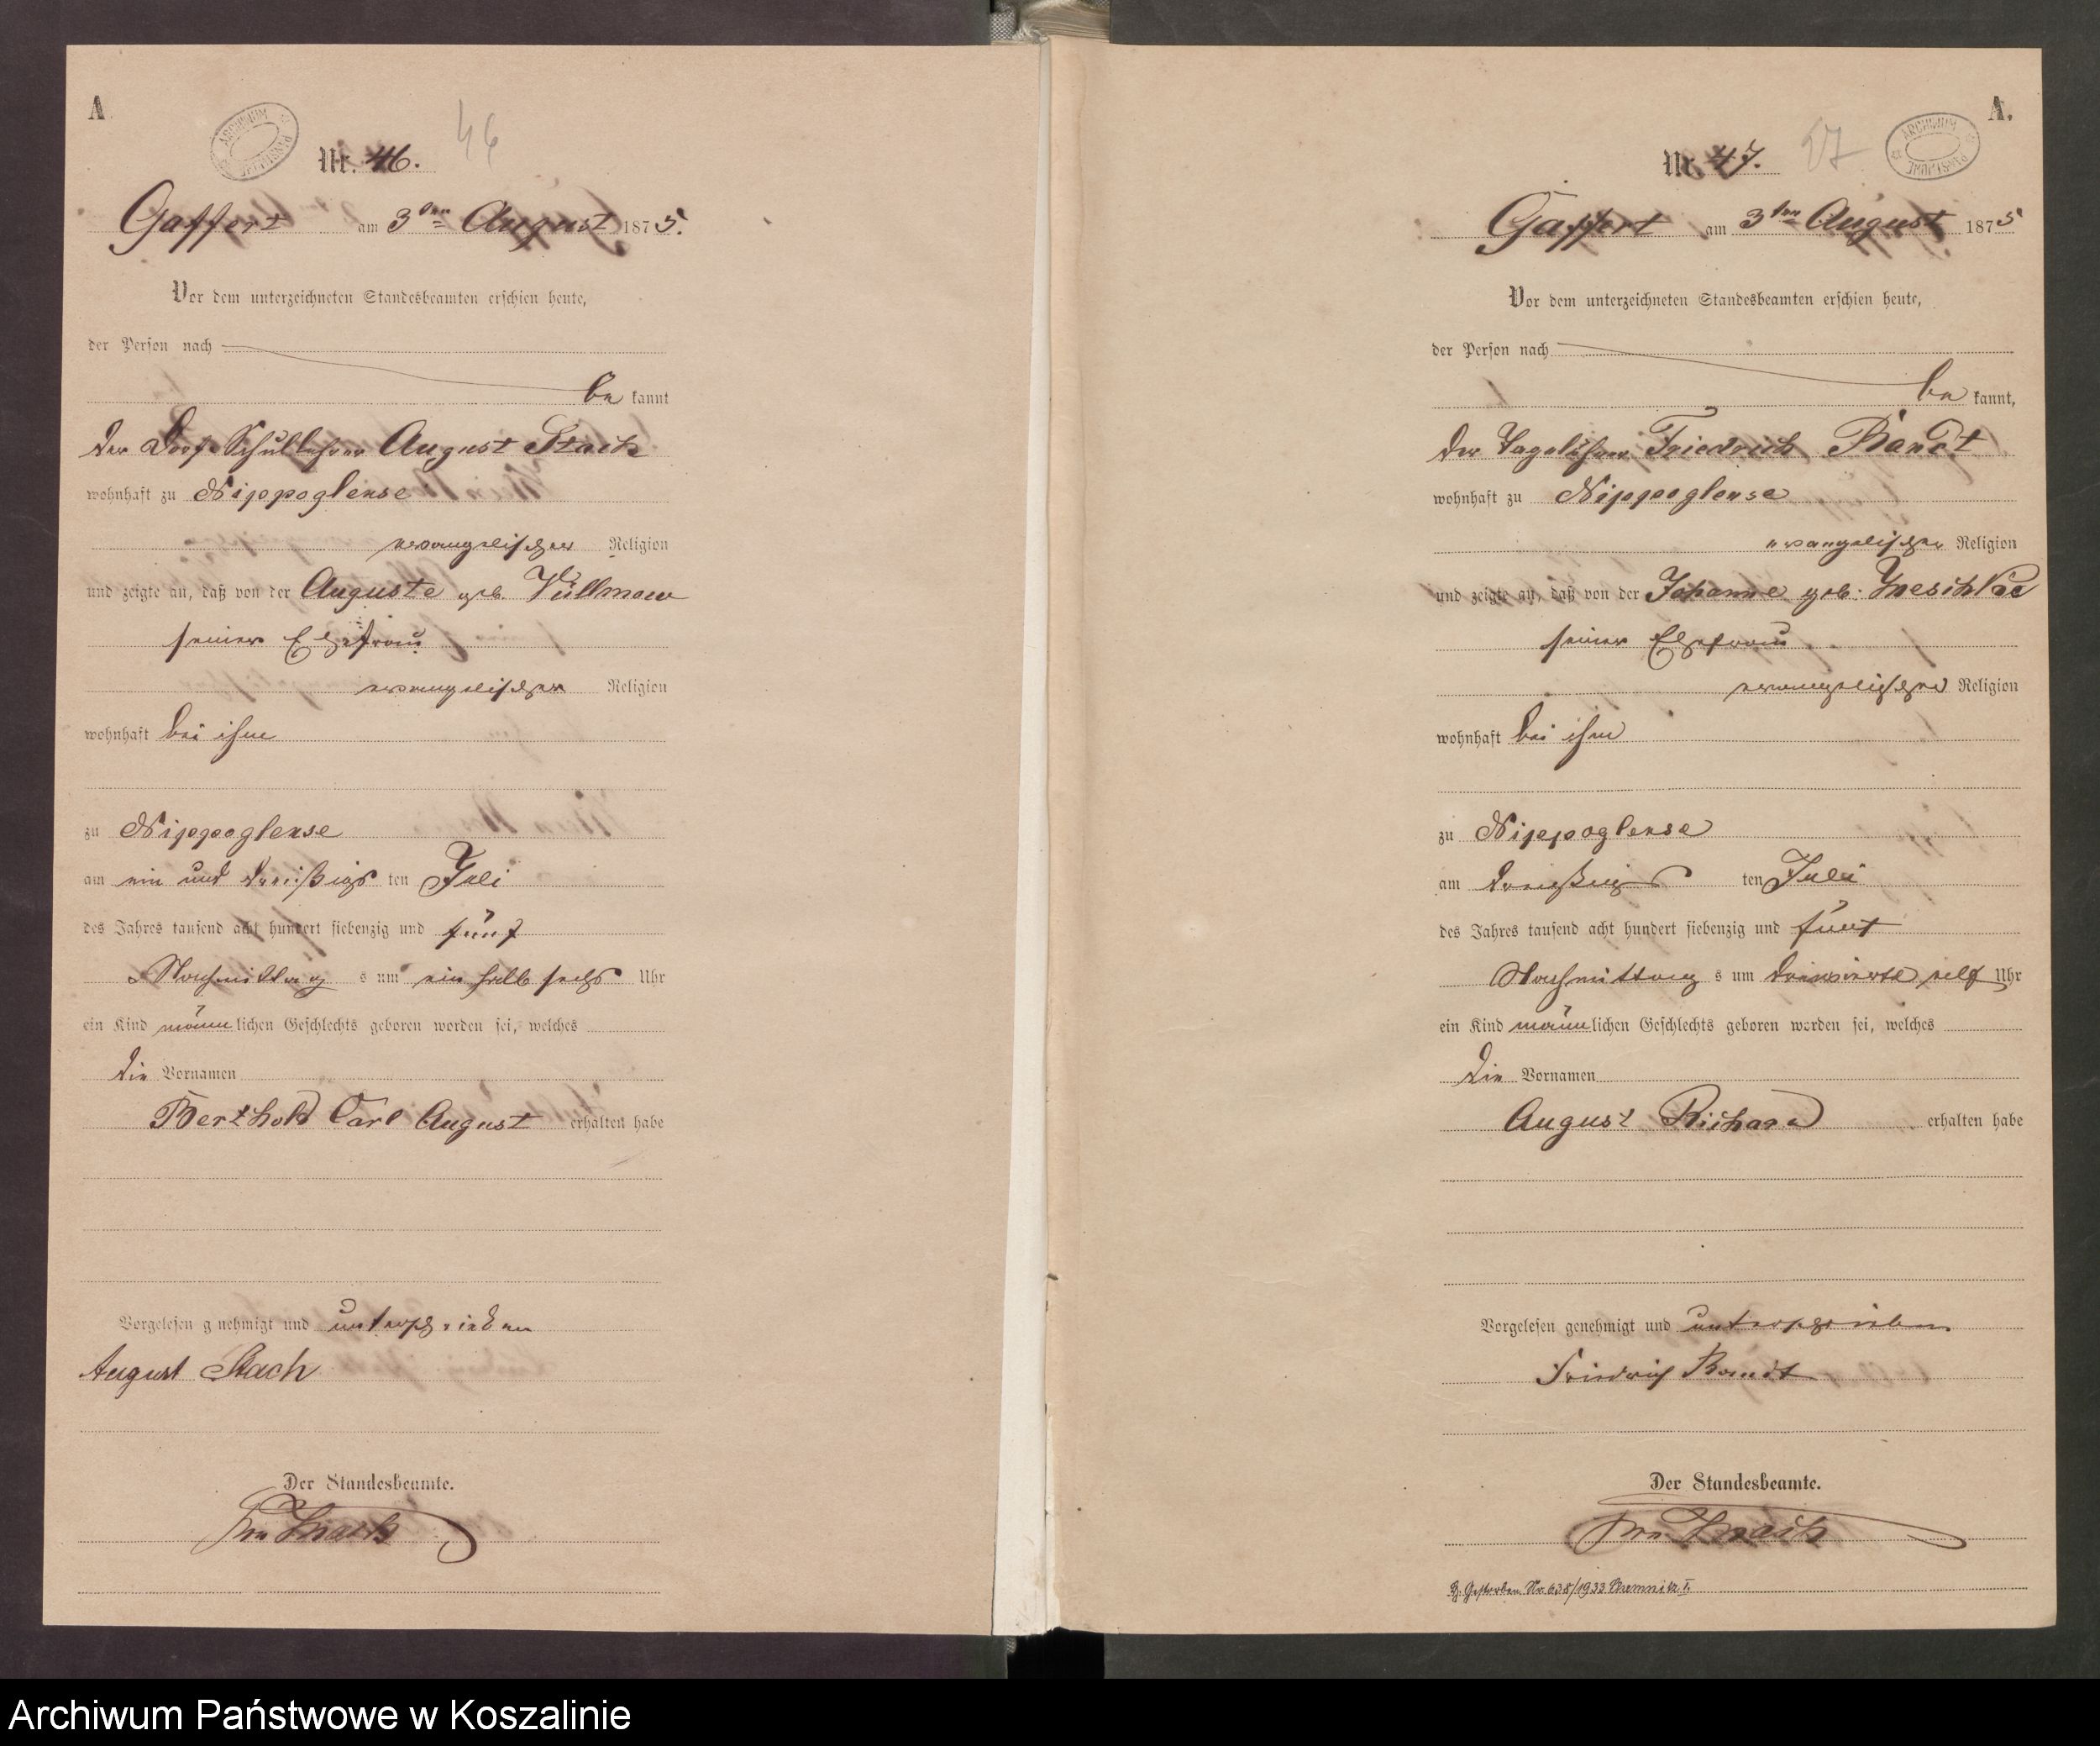 A
ARCHIWUM PAŃSTWOWE
46
Nr. 46.
Gaffert am 3ten August 1875.
Vor dem unterzeichneten Standesbeamten erschien heute,
der Person nach
be kannt
der Dorf-Schullehrer August Stach
wohnhaft zu Nippoglense
evangelischer Religion
und zeigte an, daß von der Auguste geb. Vüllmow
seiner Ehefrau
evangelischer Religion
wohnhaft bei ihm
zu Nippoglense
am ein und dreißigs ten Juli
des Jahres tausend acht hundert siebenzig und fünf
Nachmittag s um ein halb sechs Uhr
ein Kind männ lichen Geschlechts geboren worden sei, welches
die Vornamen
Berthold Carl August erhalten habe
Vorgelesen g nehmigt und unterschrieben
August Stach
Der Standesbeamte.
A.
ARCHIWUM PAŃSTWOWE
47
Nr. 47.
Gaffert am 3ten August 1875
Vor dem unterzeichneten Standesbeamten erschien heute,
der Person nach
be kannt,
der Tagelöhner Friedrich Bandt
wohnhaft zu Nippoglense
evangelischer Religion
und zeigte an, daß von der Johanne geb. Meschke
seiner Ehefrau
evangelischer Religion
wohnhaft bei ihm
zu Nippoglense
am dreißigs ten Juli
des Jahres tausend acht hundert siebenzig und fünf
Nachmittag s um dreiviertel elf Uhr
ein Kind männ lichen Geschlechts geboren worden sei, welches
die Vornamen
August Richard erhalten habe
Vorgelesen genehmigt und unterschrieben
Friedrich Bandt
Der Standesbeamte.
Gestorben Nr. 638/1933 Chemnitz I.
Archiwum Państwowe w Koszalinie